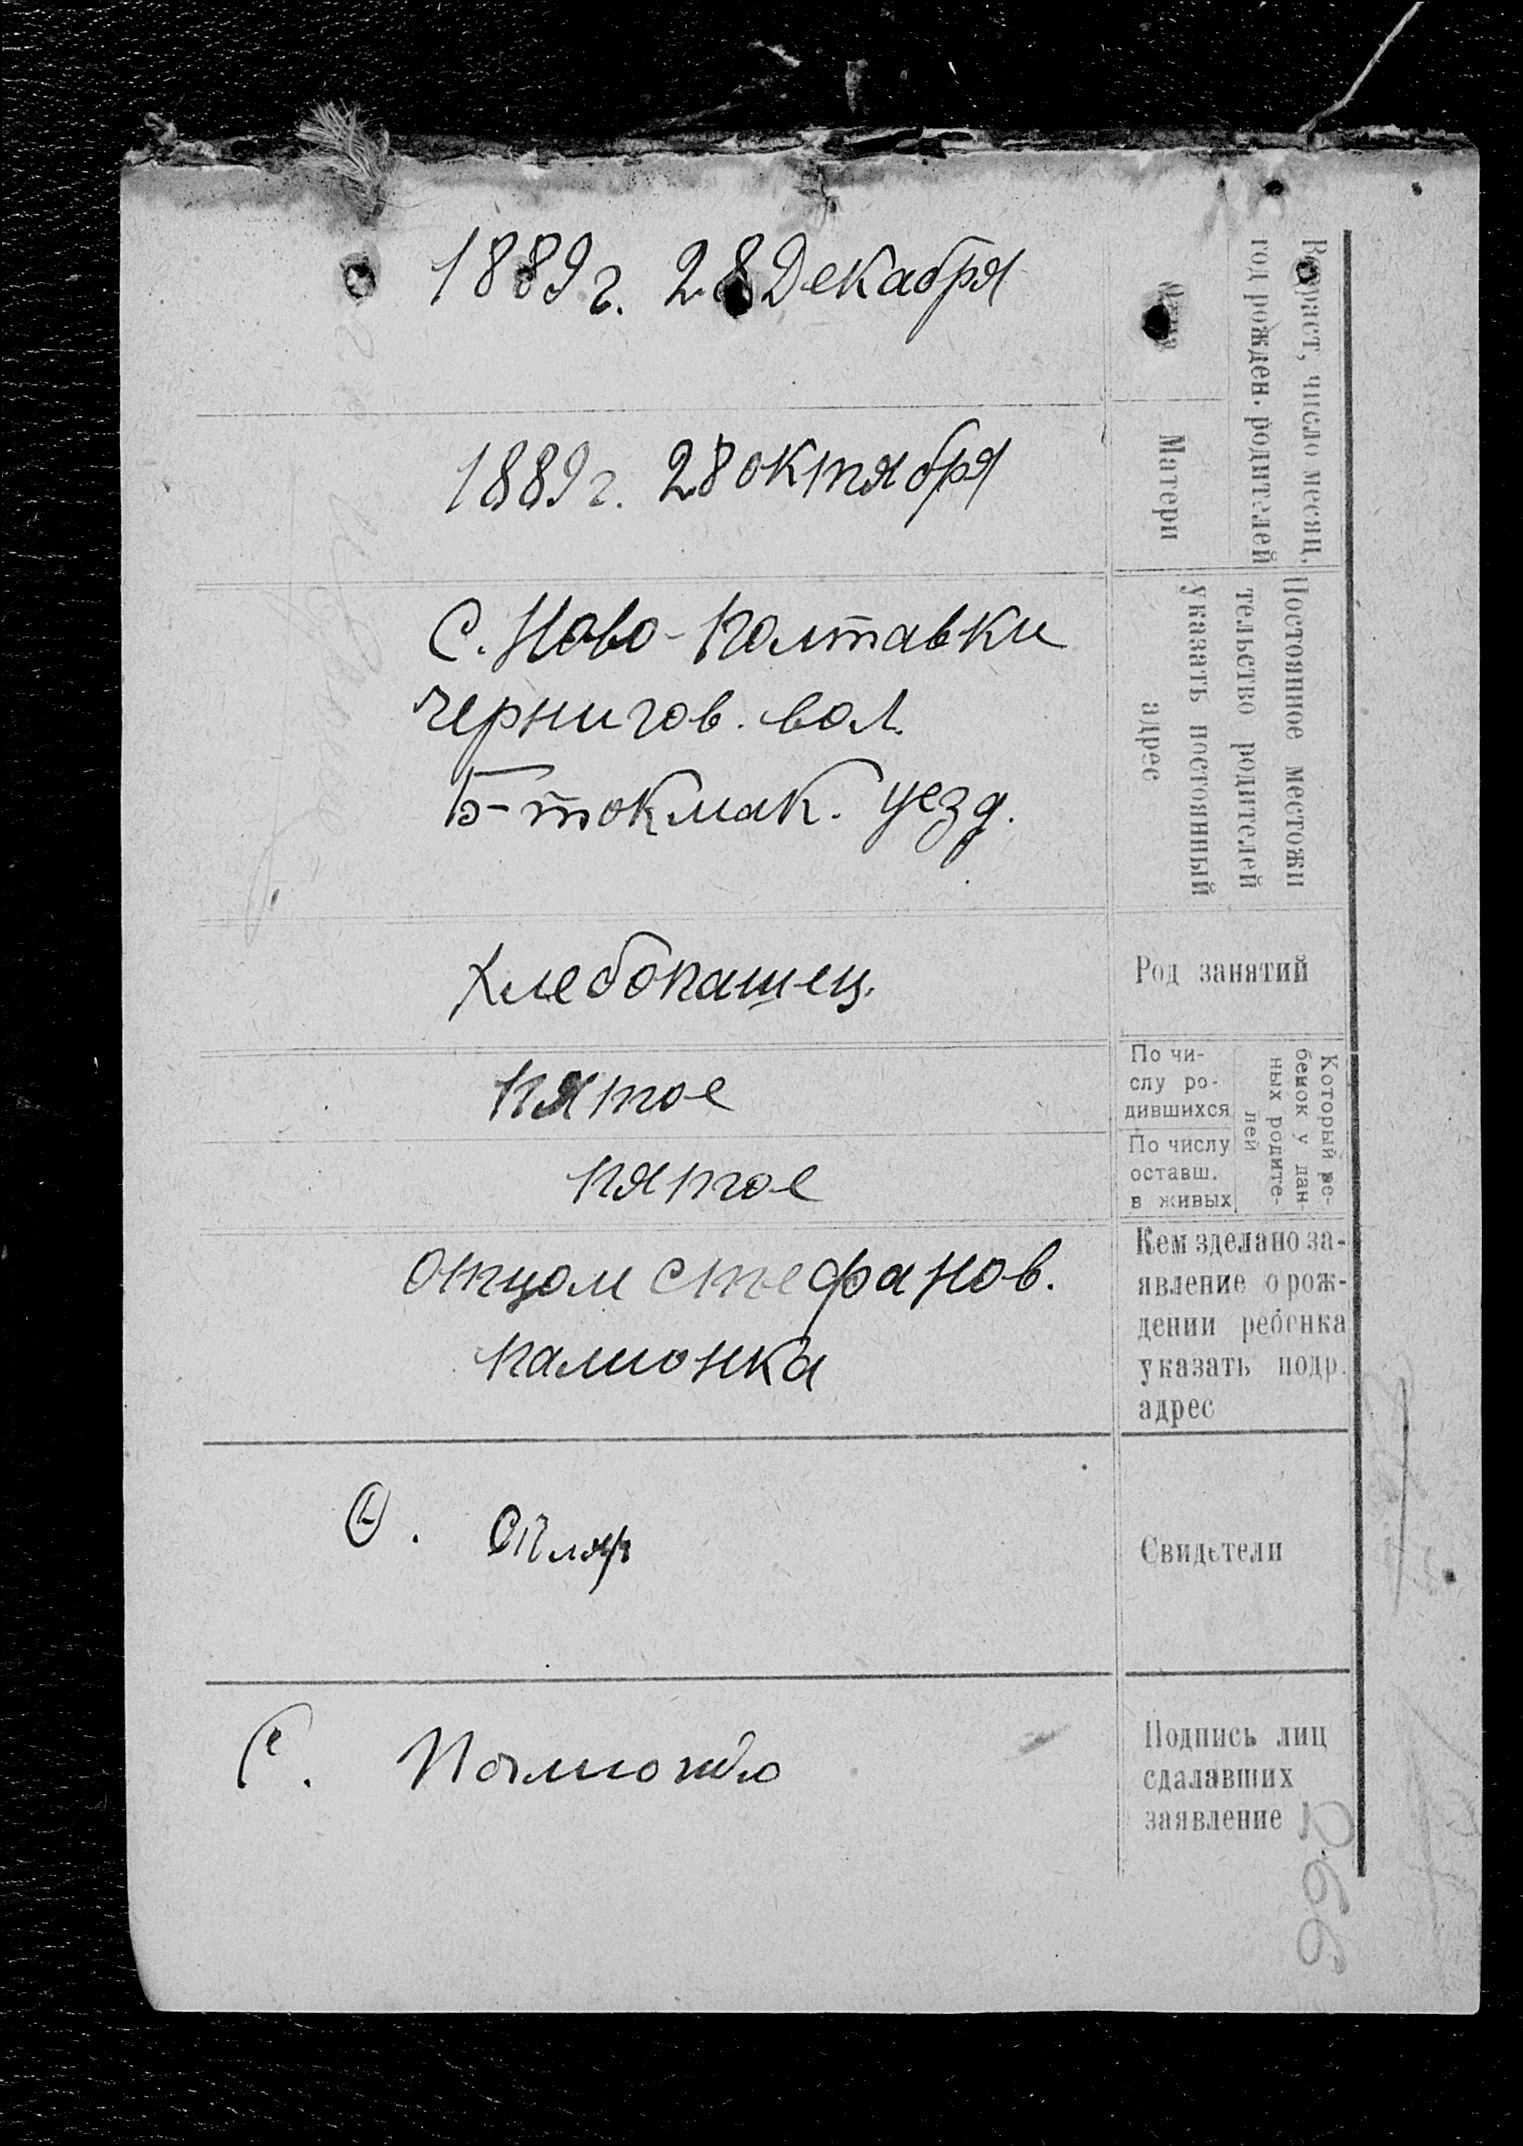 Возраст, число месяц,
год рожден. родителей
1889 г. 28 Декабря
Матери
1889 г. 28 октября
Постоянное местожи
тельство родителей
указать постоянный
адрес
С. Ново-Полтавки
Чернигов. вол.
Б-токмак. уезд.
Род занятий
Хлебопашец.
Который ре-
бенок у дан-
ных родите-
лей
По чи-
слу ро-
дившихся
пятое
По числу
оставш.
в живых
пятое
Кем зделано за-
явление о рож-
дении ребенка
указать подр.
адрес
отцом Стефанов.
Свидетели
Подпись лиц
сдалавших
заявление
С.